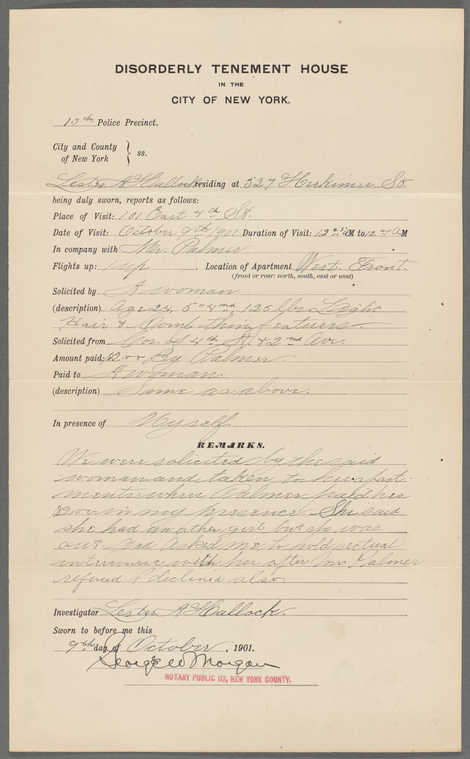 DISORDERLY TENEMENT HOUSE
IN THE
CITY OF NEW YORK.
Police Precinct.
City and County
of New York } ss.
Lester A Hallock residing at 527 Herkimer St.
being duly sworn, reports as follows:
Place of Visit: 101 East 4th St.
Date of Visit: October 9th 1901 Duration of Visit: 12 AM to 12 AM
In company with Mr. Palmer
Flights up: 1 up. Location of Apartment West. Front.
(front or rear: north, south, east or west)
Solicited by A woman
(description) Age 24, 5" 4 125 lbs Light
Hair & Comb thin features
Solicited from Cor. of 4th St. & 2nd Ave.
Amount paid; $2.00 By Palmer.
Paid to A woman
(description) Same as above.
In presence of Myself
REMARKS.
We were solicited by the said
woman and taken to her apart-
ments where Palmer paid her
$2.00 in my presence. She said
she had another girl but she was
out and asked me to hold sectual
intercourse with her after Mr Palmer
refused I declined also
Investigator Lester A Hallock.
Sworn to before me this
9th day of October, 1901.
George W Morgan
NOTARY PUBLIC NEW YORK COUNTY.